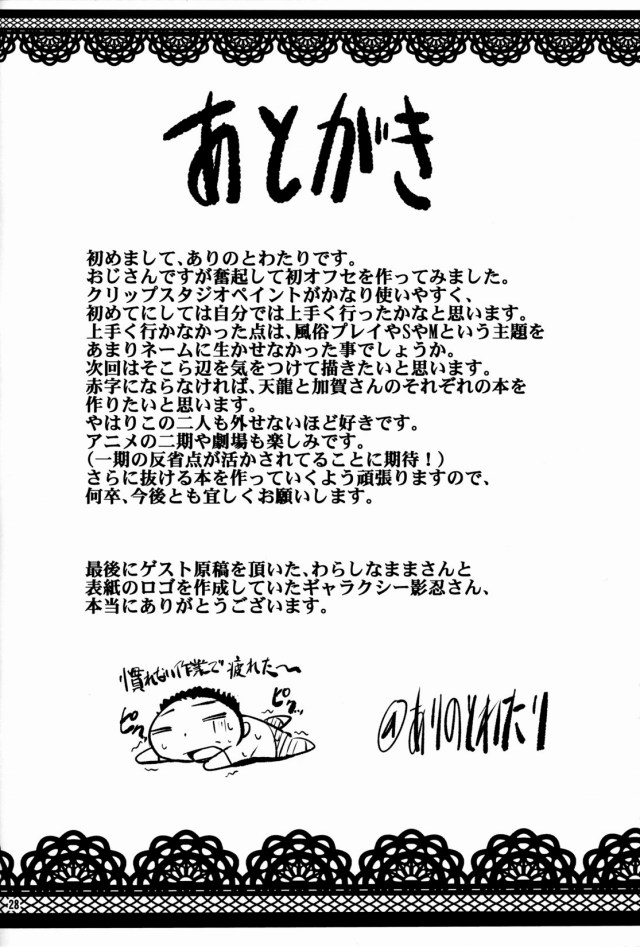 あとがき
初めまして、ありのとわたりです。
おじさんですが奮起して初オフセを作ってみました。
クリップスタジオペイントがかなり使いやすく、
初めてにしては自分では上手く行ったかなと思います。
上手く行かなかった点は、風俗プレイやSやMという主題を
あまりネームに生かせなかった事でしょうか。
次回はそこら辺を気をつけて描きたいと思います。
赤字にならなければ、天龍と加賀さんのそれぞれの本を
作りたいと思います。
やはりこの二人も外せないほど好きです。
アニメの二期や劇場も楽しみです。
(一期の反省点が活かされてることに期待!)
さらに抜ける本を作っていくよう頑張りますので、
何卒、今後とも宜しくお願いします。
最後にゲスト原稿を頂いた、わらしなままさんと
表紙のロゴを作成していたギャラクシー影忍さん、
本当にありがとうございます。
慣れない作業で疲れた〜
ピクッ
ピクッ
@ありのとわたり
28